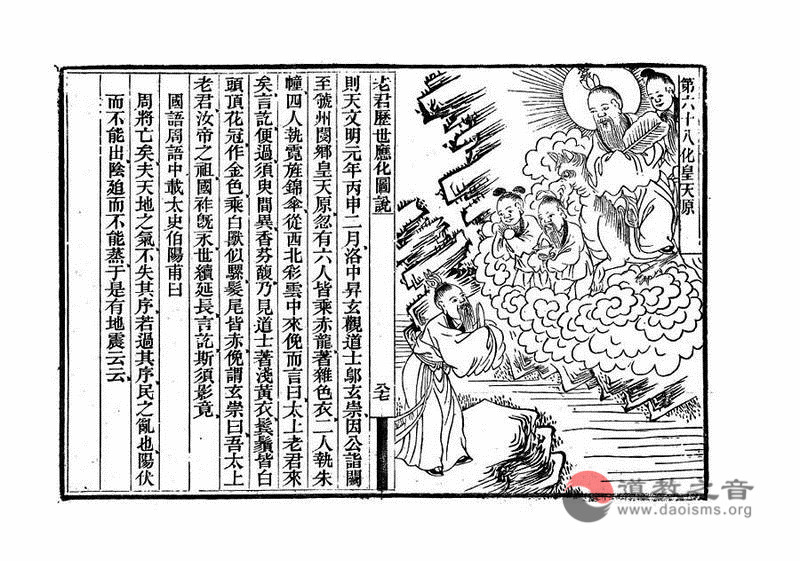 第六十八化皇天原
老君歷世應化圖說
八七
則天文明元年丙申二月洛中昇玄觀道士鄔玄崇因公詣闕
至虢州閿鄉皇天原忽有六人皆乘赤龍著雜色衣二人執朱
幢四人執霓旌錦傘從西北彩雲中來俛而言曰太上老君來
矣言訖便過須臾間異香芬馥乃見道士著淺黃衣鬢鬚皆白
頭頂花冠作金色乘白獸似騾鬃尾皆赤俛謂玄崇曰吾太上
老君汝帝之祖國祚旣永世續延長言訖斯須影竟
國語周語中載太史伯陽甫曰
周將亡矣夫天地之氣不失其序若過其序民之亂也陽伏
而不能出陰廹而不能蒸于是有地震云云
道教之音
www.daoisms.org